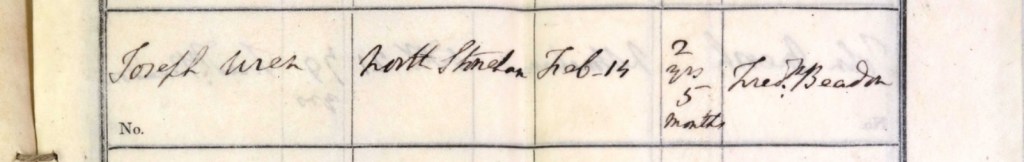 Joseph Wren North Stoneham Feb-14 2 yrs 5 months Fred.k Beadon
No.